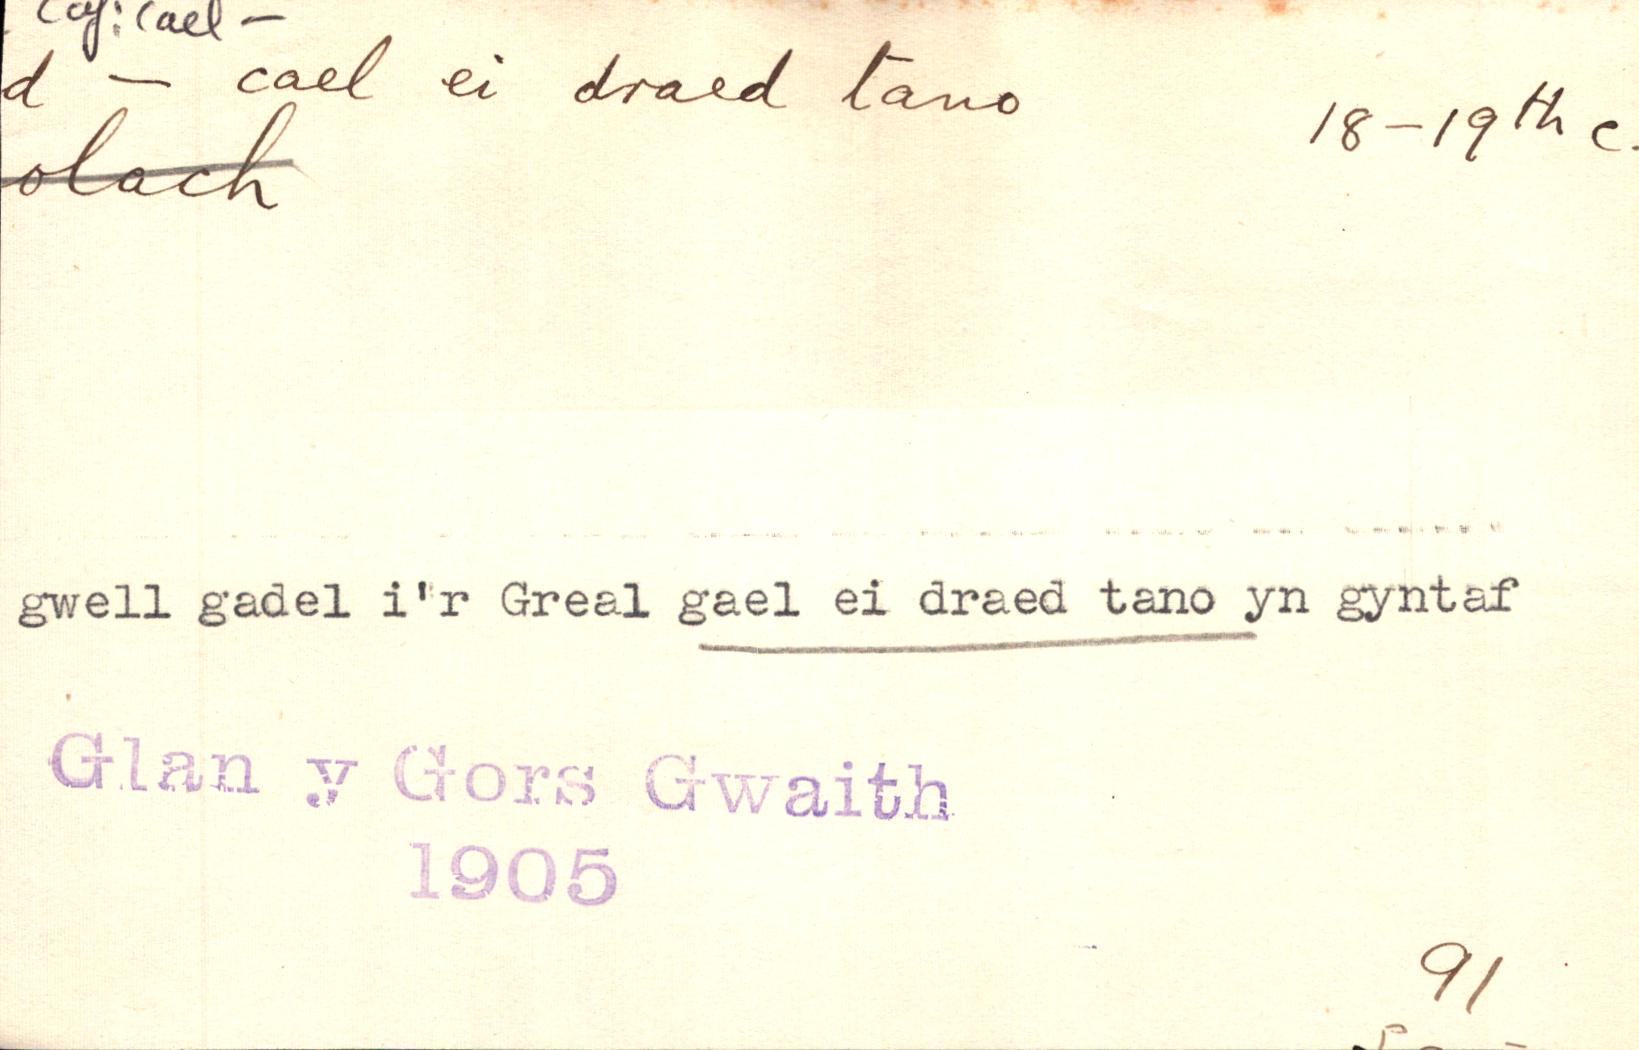 cael —
d — cael ei draed tano
18–19th c.
olach
gwell gadel i'r Greal gael ei draed tano yn gyntaf
Glan y Gors Gwaith
1905
91